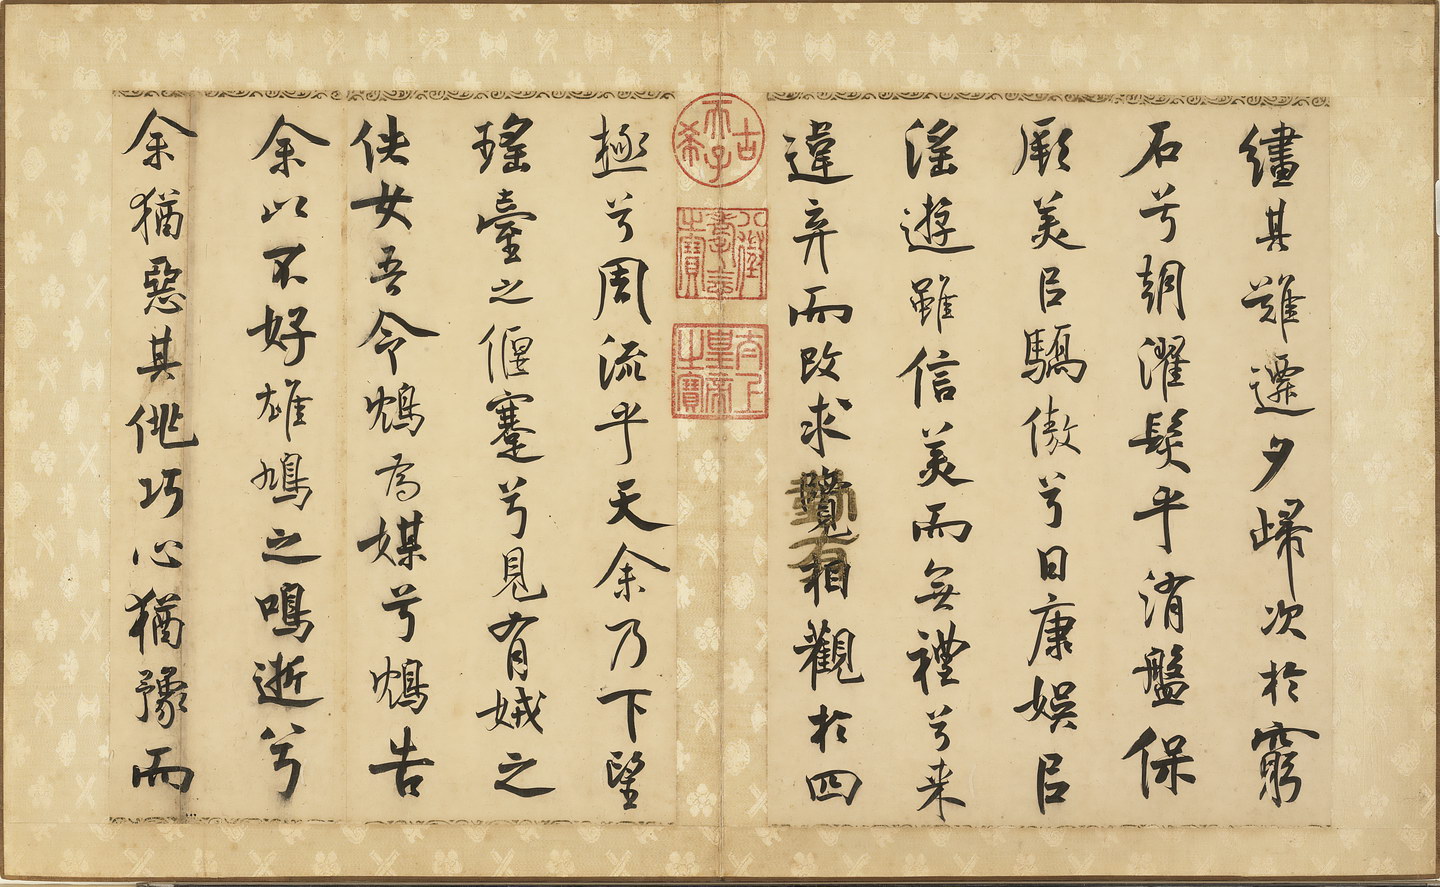 繣其難遷夕歸次於窮
石兮朝濯髮乎洧盤保
厥美㠯驕傲兮日康娛㠯
淫遊雖信美而無禮兮来
違弃而改求覽相觀於四
古希天子
八徵耄念之寶
太上皇帝之寶
極兮周流乎天余乃下望
瑤臺之偃蹇兮見有娀之
佚女吾令鴆為媒兮鴆告
余以不好雄鳩之鳴逝兮
余猶惡其佻巧心猶豫而